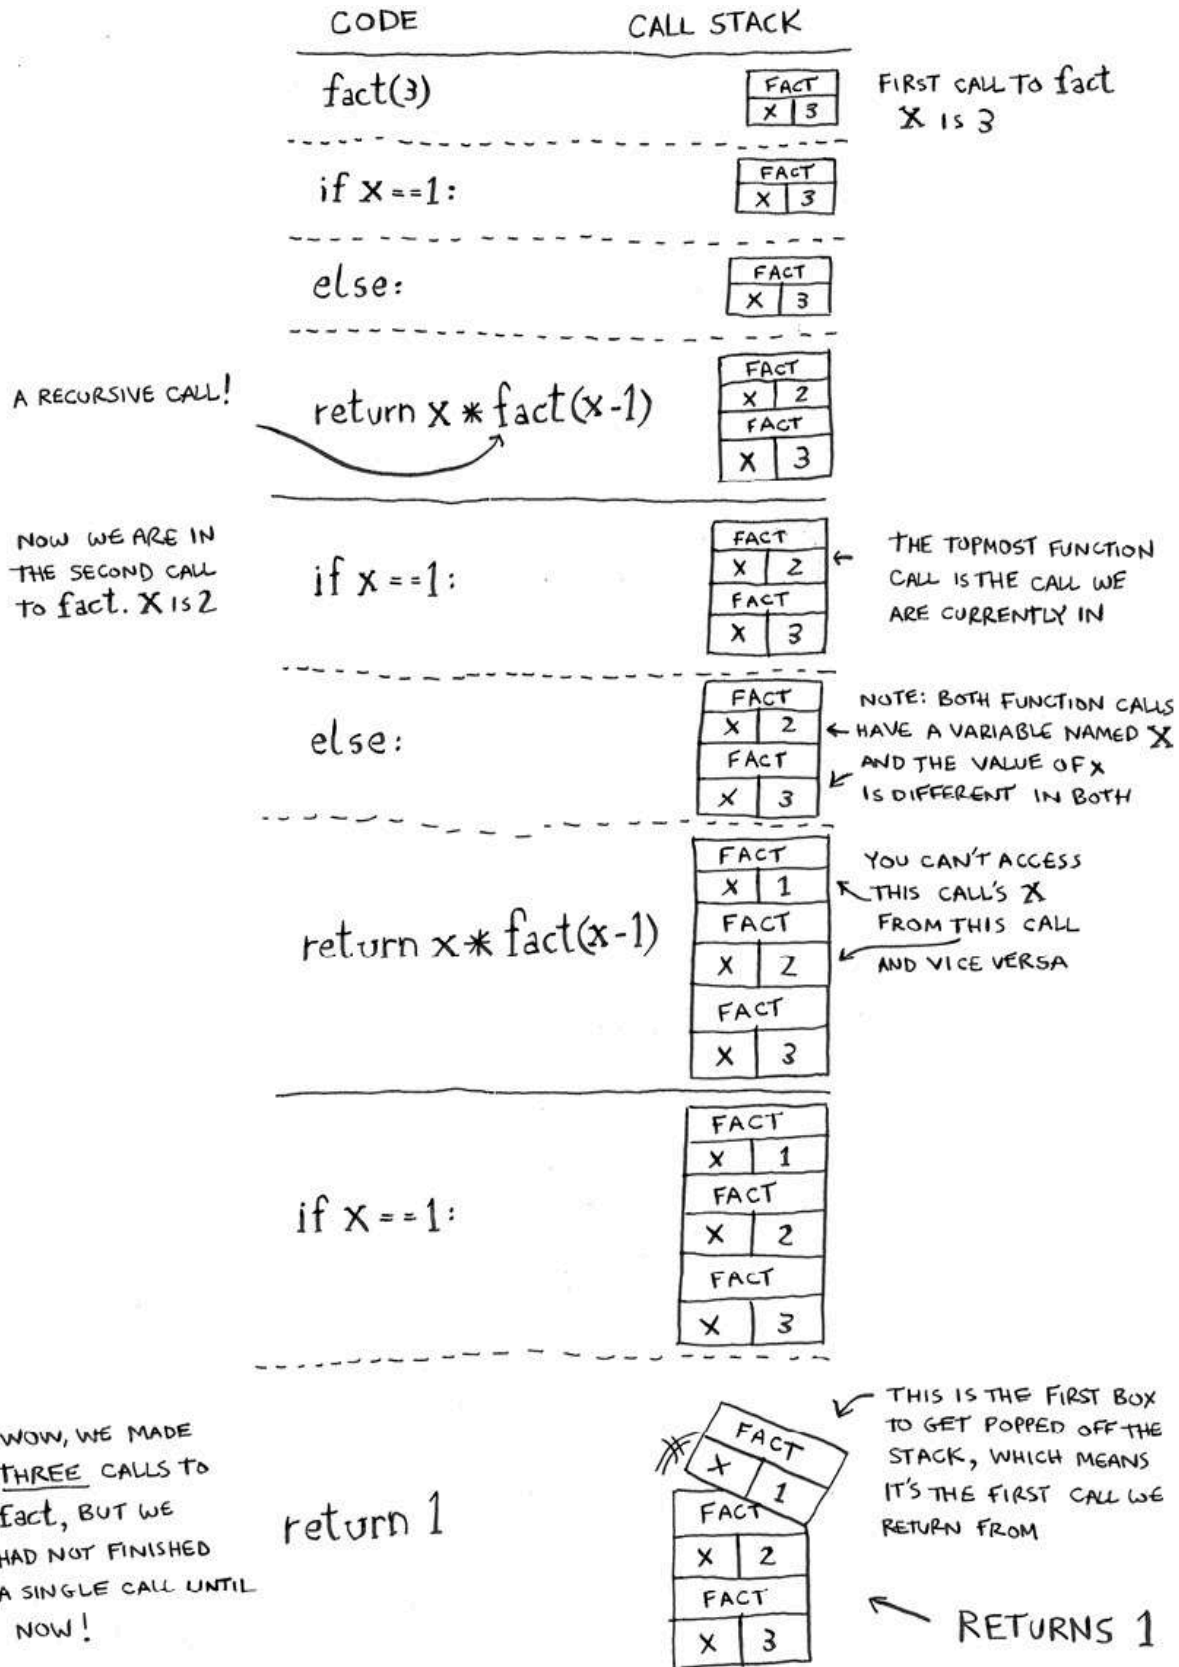 CODE CALL STACK
fact(3)
FACT
X 3
FIRST CALL TO fact
X IS 3
if x==1:
FACT
X 3
else:
FACT
X 3
A RECURSIVE CALL!
return x * fact(x-1)
FACT
X 2
FACT
X 3
NOW WE ARE IN
THE SECOND CALL
TO fact. X IS 2
if x==1:
FACT
X 2
FACT
X 3
THE TOPMOST FUNCTION
CALL IS THE CALL WE
ARE CURRENTLY IN
else:
FACT
X 2
FACT
X 3
NOTE: BOTH FUNCTION CALLS
HAVE A VARIABLE NAMED X
AND THE VALUE OF X
IS DIFFERENT IN BOTH
return x * fact(x-1)
FACT
X 1
FACT
X 2
FACT
X 3
YOU CAN'T ACCESS
THIS CALL'S X
FROM THIS CALL
AND VICE VERSA
if x==1:
FACT
X 1
FACT
X 2
FACT
X 3
WOW, WE MADE
THREE CALLS TO
fact, BUT WE
HAD NOT FINISHED
A SINGLE CALL UNTIL
NOW!
return 1
FACT
X 1
FACT
X 2
FACT
X 3
THIS IS THE FIRST BOX
TO GET POPPED OFF THE
STACK, WHICH MEANS
IT'S THE FIRST CALL WE
RETURN FROM
RETURNS 1